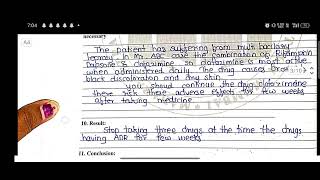 7:04
necessary
The patient has suffering from multi bacillary
leprosy. In Mr. ABC case the combination of Rifampicin
Dapsone & clofazimine. so clofazimine is most active
when administered daily. The drug causes
black discoloration and dry skin.
you should continue the drug clofazimine
these adverse effects for few weeks
after taking medicine.
10. Result:
Stop taking three drugs at the time the drugs
having ADR for few weeks
11. Conclusion: